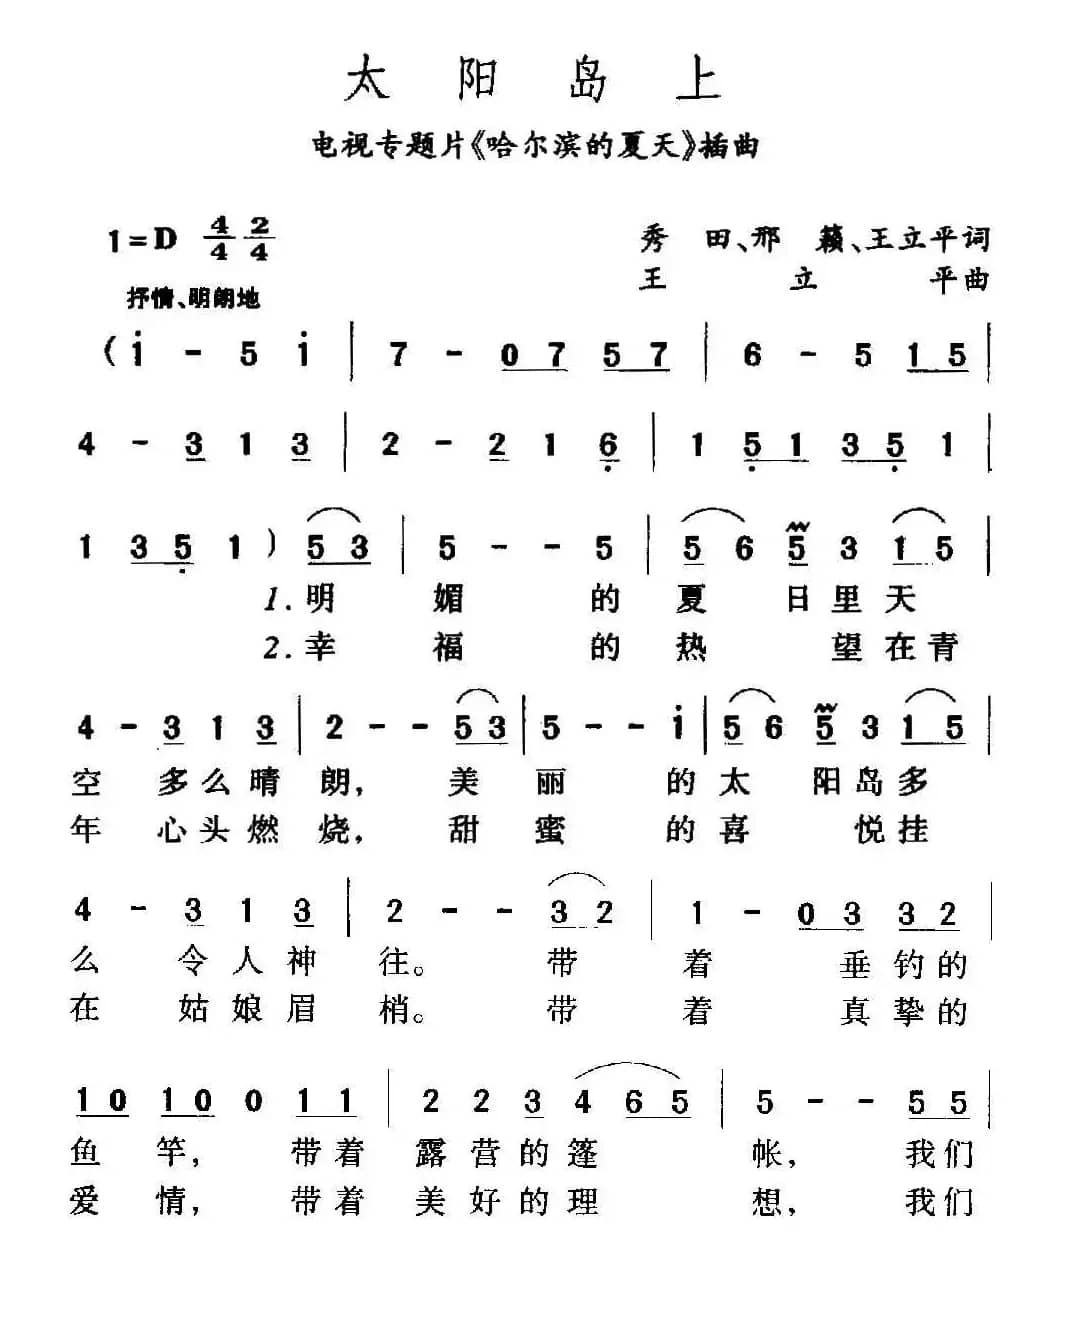 太 阳 岛 上
电视专题片《哈尔滨的夏天》插曲
1=D 4/4 2/4
秀 田、邢 籁、王立平词
抒情、明朗地
王 立 平曲
( i - 5 i | 7 - 0 7 5 7 | 6 - 5 1 5 |
4 - 3 1 3 | 2 - 2 1 6̣ | 1 5̣ 1 3 5̣ 1 |
1 3 5̣ 1 ) 5 3 | 5 - - 5 | 5 6 5 3 1 5 |
1. 明 媚 的 夏 日 里 天
2. 幸 福 的 热 望 在 青
4 - 3 1 3 | 2 - - 5 3 | 5 - - i | 5 6 5 3 1 5 |
空 多 么 晴 朗， 美 丽 的 太 阳 岛 多
年 心 头 燃 烧， 甜 蜜 的 喜 悦 挂
4 - 3 1 3 | 2 - - 3 2 | 1 - 0 3 3 2 |
么 令 人 神 往。 带 着 垂 钓 的
在 姑 娘 眉 梢。 带 着 真 挚 的
1 0 1 0 0 1 1 | 2 2 3 4 6 5 | 5 - - 5 5 |
鱼 竿， 带 着 露 营 的 篷 帐， 我 们
爱 情， 带 着 美 好 的 理 想， 我 们